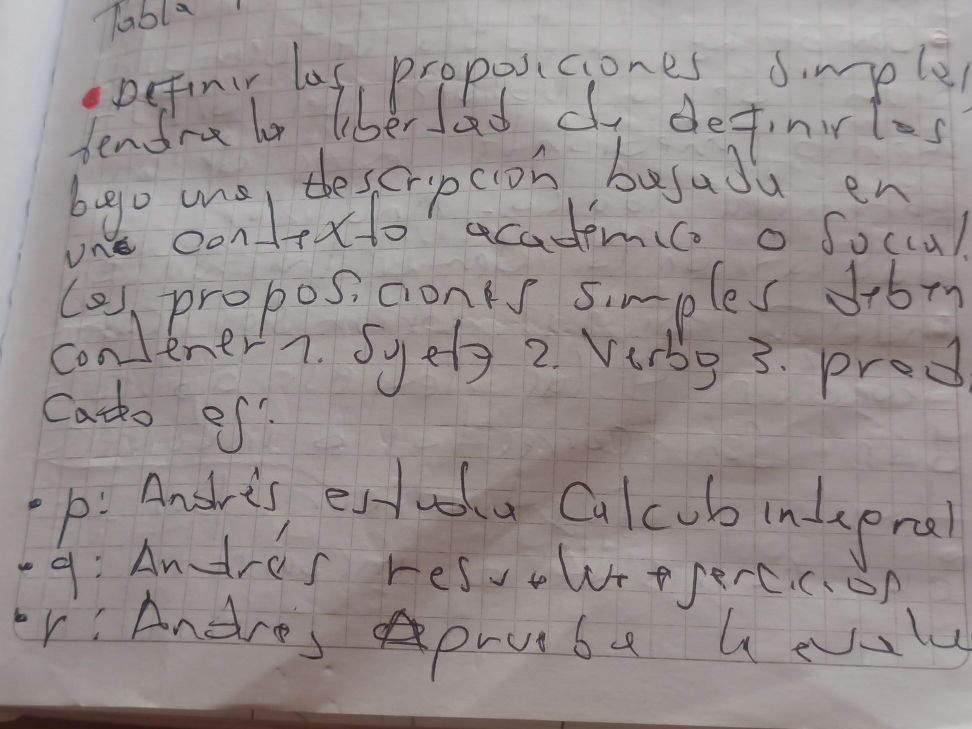 Tabla
• Definir las proposiciones simples
tendra la libertad de definirlas
bajo una descripción basada en
un contexto académico o social.
Las proposiciones simples deben
contener 1. Sujeto 2. Verbo 3. pred
cado ej:
• p: Andrés estudia Calculo integral
• q: Andrés resuelve ejercicios
• r: Andrés Aprueba la evalu